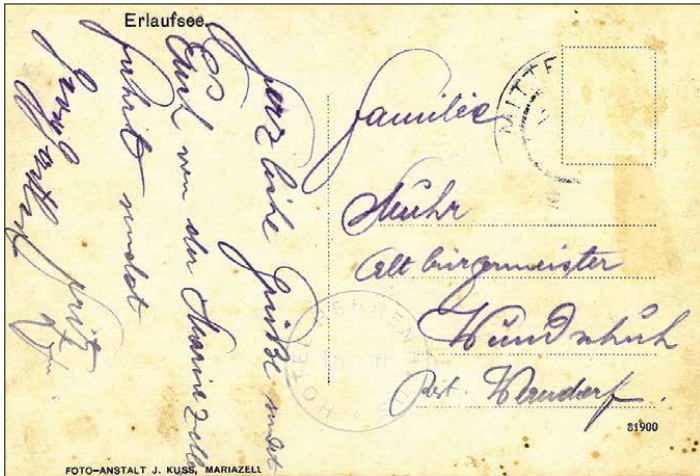 Erlaufsee.
Herzliche Grüße sendet
Euch von der Mariazell
fahrt sendet
Fritz
Familie
Altbürgermeister
Wundschuh
Post. Werndorf.
MITTE
HOTEL HERRENH
81900
FOTO-ANSTALT J. KUSS, MARIAZELL